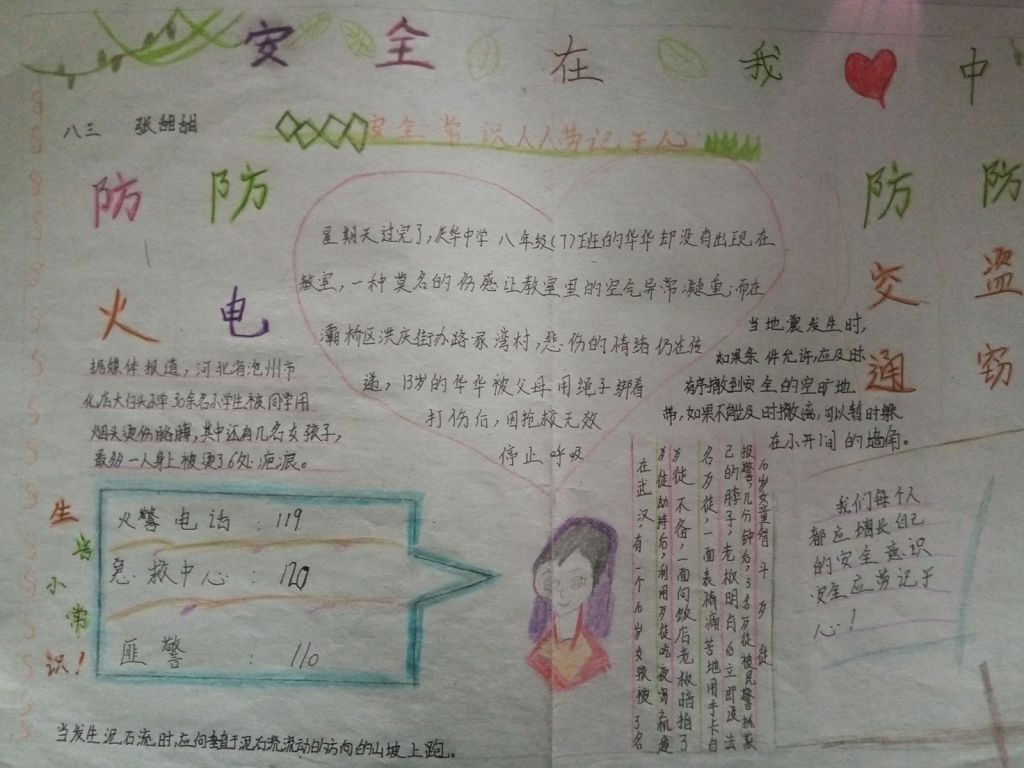 安全在我中
八三 张甜甜
安全常识人人劳记于心
防火
防电
防交通
防盗窃
星期天过完了,庆华中学八年级(7)班的华华却没有出现在
教室,一种莫名的伤感让教室里的空气异常凝重,而在
灞桥区洪庆街办路家湾村,悲伤的情绪仍在传
递,13岁的华华被父母用绳子绑着
打伤后,因抢救无效
停止呼吸
据媒体报道,河北省沧州市
30余名小学生被同学用
烟头烫伤胳膊,其中还有几名女孩子,
最多一人身上被烫36处疤痕。
当地震发生时,
如果条件允许,应及时
有序撤到安全的空旷地
带,如果不能及时撤离,可以暂时躲
在小开间的墙角。
生
小常
识!
火警电话:119
急救中心:120
匪警:110
16岁女童智斗歹徒
在武汉,有一个16岁女孩被3名
歹徒劫持后,利用歹徒吃夜宵
歹徒不备,一面向饭店老板暗指了
名歹徒,一面表情痛苦地用手卡自
己的脖子,老板明白后立即设法
报警,几分钟后,3名歹徒被民警抓获
我们每个人
都应增长自己
的安全意识
安全应劳记于
心!
当发生泥石流时,应向垂直于泥石流流动的方向的山坡上跑。